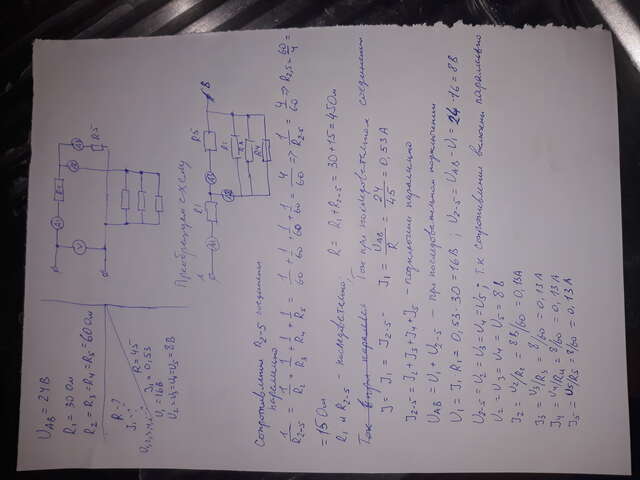 U_AB = 24В
R1 = 30 Ом
R2 = R3 = R4 = R5 = 60 Ом
R - ?
R = 45
I1 = 0,53
U1 = 16В
U2 = U3 = U4 = U5 = 8В
A1
V
A2
A3
R5
Преобразуем схему
A
R1
R5
B
A1
A3
A2
R4
Сопротивления R2-5 соединены
параллельно
1/R2-5 = 1/R2 + 1/R3 + 1/R4 + 1/R5 = 1/60 + 1/60 + 1/60 + 1/60 = 4/60 => 1/R2-5 = 4/60 => R2,5 = 60/4 =
= 15 Ом
R1 и R2-5 - последовательно R = R1 + R2-5 = 30 + 15 = 45 Ом
Ток при последовательном соединении
I = I1 = I2-5 - I1 = U_AB/R = 24/45 = 0,53 А
I2-5 = I2 + I3 + I4 + I5 - подключены параллельно
U_AB = U1 + U2-5 - при последовательном подключении
U1 = I1 R1 = 0,53 · 30 = 16В ; U2-5 = U_AB - U1 = 24 - 16 = 8В
U2-5 = U2 = U3 = U4 = U5 ; т.к сопротивления включены параллельно
U2 = U3 = U4 = U5 = 8В
I2 = U2/R2 = 8В/60 = 0,13А
I3 = U3/R3 = 8/60 = 0,13 А
I4 = U4/R4 = 8/60 = 0,13 А
I5 = U5/R5 = 8/60 = 0,13 А